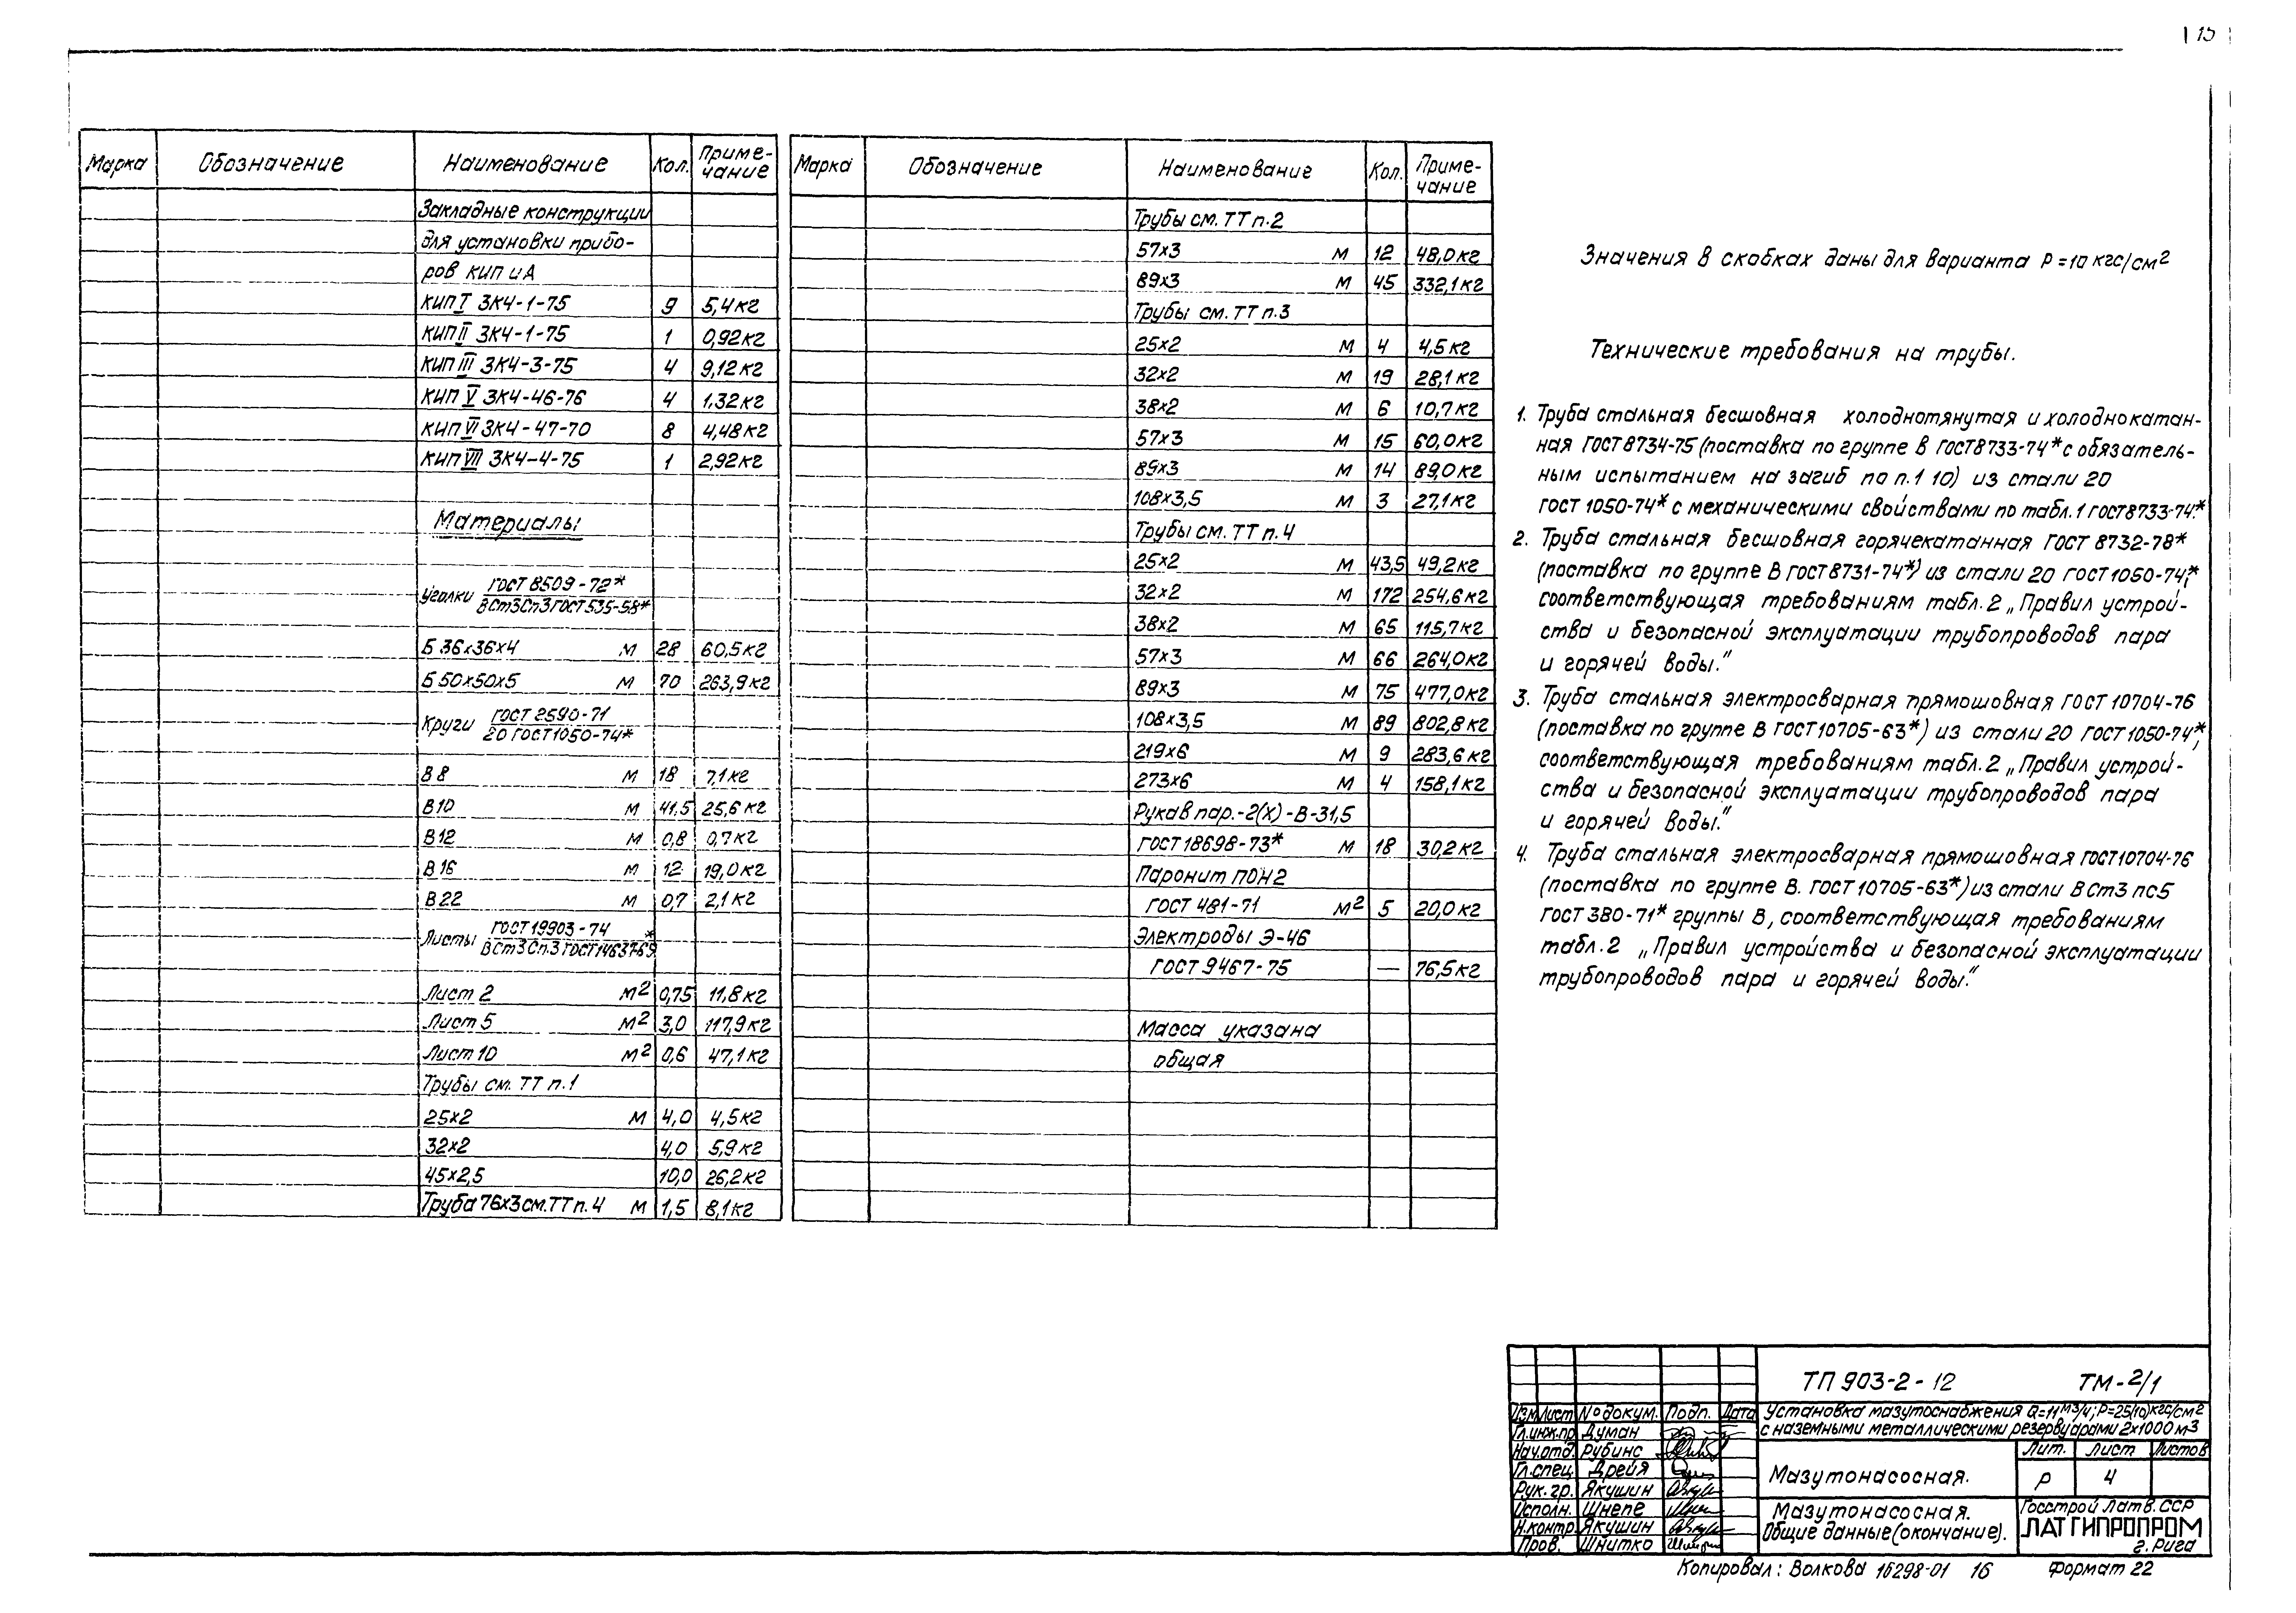 15
Марка Обозначение Наименование Кол. Приме-
чание
Закладные конструкции
для установки прибо-
ров КИП и А
КИП I ЗК4-1-75 9 5,4кг
КИП II ЗК4-1-75 1 0,92кг
КИП III ЗК4-3-75 4 9,12кг
КИП V ЗК4-46-76 4 1,32кг
КИП VI ЗК4-47-70 8 4,48кг
КИП VII ЗК4-4-75 1 2,92кг
Материалы
ГОСТ 8509-72*
Уголки
ВСт3Сп3ГОСТ535-58*
Б 36х36х4 м 28 60,5кг
Б 50х50х5 м 70 263,9кг
ГОСТ 2590-71
Круги
20 ГОСТ1050-74*
В 8 м 18 7,1кг
В10 м 41,5 25,6кг
В12 м 0,8 0,7кг
В16 м 12 19,0кг
В22 м 0,7 2,1кг
ГОСТ19903-74
Листы
ВСт3Сп3ГОСТ14637-69*
Лист 2 м² 0,75 11,8кг
Лист 5 м² 3,0 117,9кг
Лист 10 м² 0,6 47,1кг
Трубы см. ТТ п.1
25х2 м 4,0 4,5кг
32х2 4,0 5,9кг
45х2,5 10,0 26,2кг
Труба 76х3 см.ТТп.4 м 1,5 8,1кг
Марка Обозначение Наименование Кол. Приме-
чание
Трубы см. ТТ п.2
57х3 м 12 48,0кг
89х3 м 45 332,1кг
Трубы см. ТТ п.3
25х2 м 4 4,5кг
32х2 м 19 28,1кг
38х2 м 6 10,7кг
57х3 м 15 60,0кг
89х3 м 14 89,0кг
108х3,5 м 3 27,1кг
Трубы см. ТТ п.4
25х2 м 43,5 49,2кг
32х2 м 172 254,6кг
38х2 м 65 115,7кг
57х3 м 66 264,0кг
89х3 м 75 477,0кг
108х3,5 м 89 802,8кг
219х6 м 9 283,6кг
273х6 м 4 158,1кг
Рукав пар.-2(Х)-В-31,5
ГОСТ 18698-73* м 18 30,2кг
Паронит ПОН2
ГОСТ 481-71 м² 5 20,0кг
Электроды Э-46
ГОСТ 9467-75 — 76,5кг
Масса указана
общая
Значения в скобках даны для варианта Р=10 кгс/см²
Технические требования на трубы.
1. Труба стальная бесшовная холоднотянутая и холоднокатан-
ная ГОСТ 8734-75 (поставка по группе В ГОСТ8733-74* с обязатель-
ным испытанием на загиб по п.1 10) из стали 20
ГОСТ 1050-74* с механическими свойствами по табл.1 ГОСТ8733-74.*
2. Труба стальная бесшовная горячекатанная ГОСТ 8732-78*
(поставка по группе В ГОСТ8731-74*) из стали 20 ГОСТ1050-74*,
соответствующая требованиям табл.2 „Правил устрой-
ства и безопасной эксплуатации трубопроводов пара
и горячей воды."
3. Труба стальная электросварная прямошовная ГОСТ 10704-76
(поставка по группе В ГОСТ10705-63*) из стали 20 ГОСТ 1050-74*,
соответствующая требованиям табл.2 „Правил устрой-
ства и безопасной эксплуатации трубопроводов пара
и горячей воды."
4. Труба стальная электросварная прямошовная ГОСТ10704-76
(поставка по группе В. ГОСТ 10705-63*) из стали ВСт3 пс5
ГОСТ 380-71* группы В, соответствующая требованиям
табл.2 „Правил устройства и безопасной эксплуатации
трубопроводов пара и горячей воды."
ТП 903-2-12 ТМ-2/1
Изм Лист № докум. Подп. Дата
Гл.инж.пр Думан
Нач.отд. Рубинс
Гл.спец. Дрейя
Рук.гр. Якушин
Исполн. Шнепе
Н.контр. Якушин
Пров. Шнитко
Установка мазутоснабжения Q=11м³/ч; Р=25(10)кгс/см²
с наземными металлическими резервуарами 2х1000м³
Мазутонасосная.
Лит. Лист Листов
Р 4
Мазутонасосная.
Общие данные(окончание).
Госстрой Латв.ССР
ЛАТГИПРОПРОМ
г. Рига
Копировал: Волкова 16298-01 16 Формат 22